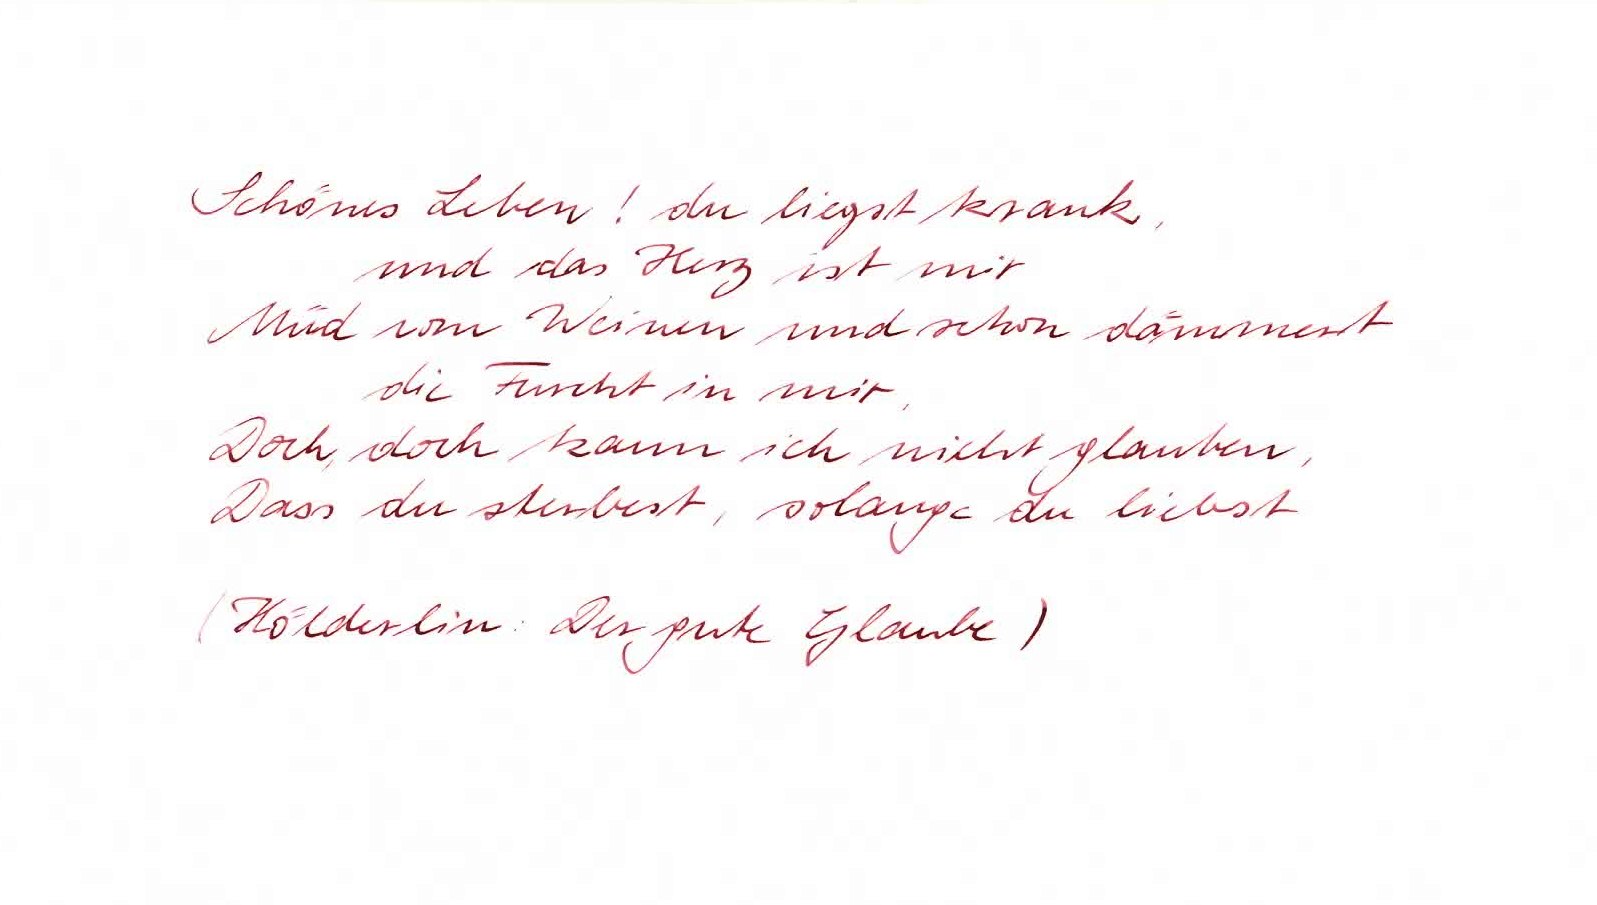 Schönes Leben! du liegst krank,
und das Herz ist mir
Müd vom Weinen und schon dämmert
die Furcht in mir,
Doch, doch kann ich nicht glauben,
Dass du sterbest, solange du liebst
(Hölderlin: Der gute Glaube)